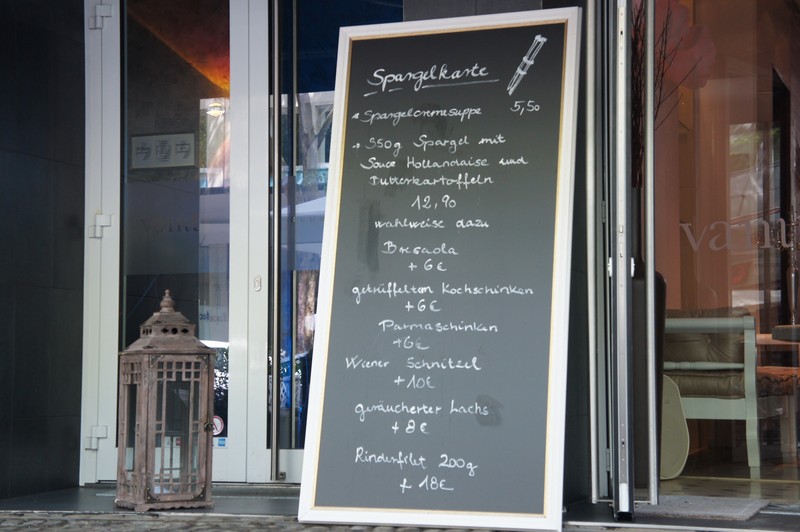 Spargelkarte
Spargelcremesuppe 5,50
350g Spargel mit
Sauce Hollandaise und
Butterkartoffeln
12,90
wahlweise dazu
Bresaola
+ 6€
getrüffelten Kochschinken
+6€
Parmaschinken
+6€
Wiener Schnitzel
+ 10€
geräucherter Lachs
+ 8€
Rinderfilet 200g
+ 18€